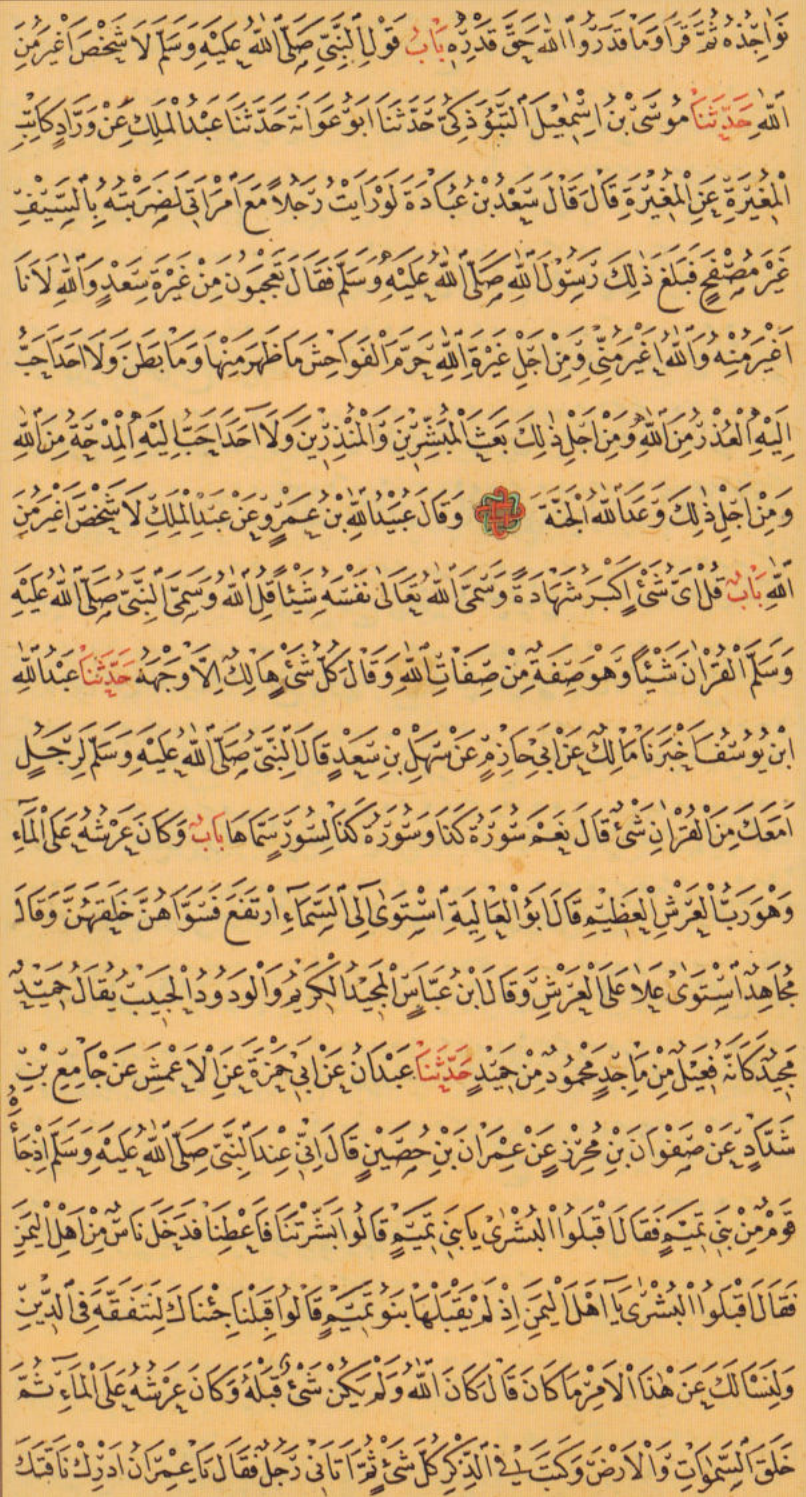 نَوَاجِذُهُ ثُمَّ قَرَأَ وَمَا قَدَرُوا اللَّهَ حَقَّ قَدْرِهِ بَابُ قَوْلِ النَّبِيِّ صَلَّى اللَّهُ عَلَيْهِ وَسَلَّمَ لَا شَخْصَ أَغْيَرُ مِنَ
اللَّهِ حَدَّثَنَا مُوسَى بْنُ إِسْمٰعِيلَ التَّبُوذَكِيُّ حَدَّثَنَا أَبُو عَوَانَةَ حَدَّثَنَا عَبْدُ الْمَلِكِ عَنْ وَرَّادٍ كَاتِبِ
الْمُغِيرَةِ عَنِ الْمُغِيرَةِ قَالَ قَالَ سَعْدُ بْنُ عُبَادَةَ لَوْ رَأَيْتُ رَجُلًا مَعَ امْرَأَتِي لَضَرَبْتُهُ بِالسَّيْفِ
غَيْرَ مُصْفَحٍ فَبَلَغَ ذٰلِكَ رَسُولَ اللَّهِ صَلَّى اللَّهُ عَلَيْهِ وَسَلَّمَ فَقَالَ تَعْجَبُونَ مِنْ غَيْرَةِ سَعْدٍ وَاللَّهِ لَأَنَا
أَغْيَرُ مِنْهُ وَاللَّهُ أَغْيَرُ مِنِّي وَمِنْ أَجْلِ غَيْرَةِ اللَّهِ حَرَّمَ الْفَوَاحِشَ مَا ظَهَرَ مِنْهَا وَمَا بَطَنَ وَلَا أَحَدَ أَحَبُّ
إِلَيْهِ الْعُذْرُ مِنَ اللَّهِ وَمِنْ أَجْلِ ذٰلِكَ بَعَثَ الْمُبَشِّرِينَ وَالْمُنْذِرِينَ وَلَا أَحَدَ أَحَبُّ إِلَيْهِ الْمِدْحَةُ مِنَ اللَّهِ
وَمِنْ أَجْلِ ذٰلِكَ وَعَدَ اللَّهُ الْجَنَّةَ وَقَالَ عُبَيْدُ اللَّهِ بْنُ عَمْرٍو عَنْ عَبْدِ الْمَلِكِ لَا شَخْصَ أَغْيَرُ مِنَ
اللَّهِ بَابٌ قُلْ أَيُّ شَيْءٍ أَكْبَرُ شَهَادَةً وَسَمَّى اللَّهُ تَعَالَى نَفْسَهُ شَيْئًا قُلِ اللَّهُ وَسَمَّى النَّبِيُّ صَلَّى اللَّهُ عَلَيْهِ
وَسَلَّمَ الْقُرْاٰنَ شَيْئًا وَهُوَ صِفَةٌ مِنْ صِفَاتِ اللَّهِ وَقَالَ كُلُّ شَيْءٍ هَالِكٌ إِلَّا وَجْهَهُ حَدَّثَنَا عَبْدُ اللَّهِ
ابْنُ يُوسُفَ أَخْبَرَنَا مَالِكٌ عَنْ أَبِي حَازِمٍ عَنْ سَهْلِ بْنِ سَعْدٍ قَالَ النَّبِيُّ صَلَّى اللَّهُ عَلَيْهِ وَسَلَّمَ لِرَجُلٍ
أَمَعَكَ مِنَ الْقُرْاٰنِ شَيْءٌ قَالَ نَعَمْ سُورَةُ كَذَا وَسُورَةُ كَذَا لِسُوَرٍ سَمَّاهَا بَابٌ وَكَانَ عَرْشُهُ عَلَى الْمَاءِ
وَهُوَ رَبُّ الْعَرْشِ الْعَظِيمِ قَالَ أَبُو الْعَالِيَةِ اسْتَوَى إِلَى السَّمَاءِ ارْتَفَعَ فَسَوَّاهُنَّ خَلَقَهُنَّ وَقَالَ
مُجَاهِدٌ اسْتَوَى عَلَا عَلَى الْعَرْشِ وَقَالَ ابْنُ عَبَّاسٍ الْمَجِيدُ الْكَرِيمُ وَالْوَدُودُ الْحَبِيبُ يُقَالُ حَمِيدٌ
مَجِيدٌ كَأَنَّهُ فَعِيلٌ مِنْ مَاجِدٍ مَحْمُودٌ مِنْ حَمِيدٍ حَدَّثَنَا عَبْدَانُ عَنْ أَبِي حَمْزَةَ عَنِ الْأَعْمَشِ عَنْ جَامِعِ بْنِ
شَدَّادٍ عَنْ صَفْوَانَ بْنِ مُحْرِزٍ عَنْ عِمْرَانَ بْنِ حُصَيْنٍ قَالَ إِنِّي عِنْدَ النَّبِيِّ صَلَّى اللَّهُ عَلَيْهِ وَسَلَّمَ إِذْ جَاءَهُ
قَوْمٌ مِنْ بَنِي تَمِيمٍ فَقَالَ اقْبَلُوا الْبُشْرَى يَا بَنِي تَمِيمٍ قَالُوا بَشَّرْتَنَا فَأَعْطِنَا فَدَخَلَ نَاسٌ مِنْ أَهْلِ الْيَمَنِ
فَقَالَ اقْبَلُوا الْبُشْرَى يَا أَهْلَ الْيَمَنِ إِذْ لَمْ يَقْبَلْهَا بَنُو تَمِيمٍ قَالُوا قَبِلْنَا جِئْنَاكَ لِنَتَفَقَّهَ فِي الدِّينِ
وَلِنَسْأَلَكَ عَنْ هٰذَا الْأَمْرِ مَا كَانَ قَالَ كَانَ اللَّهُ وَلَمْ يَكُنْ شَيْءٌ قَبْلَهُ وَكَانَ عَرْشُهُ عَلَى الْمَاءِ ثُمَّ
خَلَقَ السَّمٰوَاتِ وَالْأَرْضَ وَكَتَبَ فِي الذِّكْرِ كُلَّ شَيْءٍ ثُمَّ أَتَانِي رَجُلٌ فَقَالَ يَا عِمْرَانُ أَدْرِكْ نَاقَتَكَ